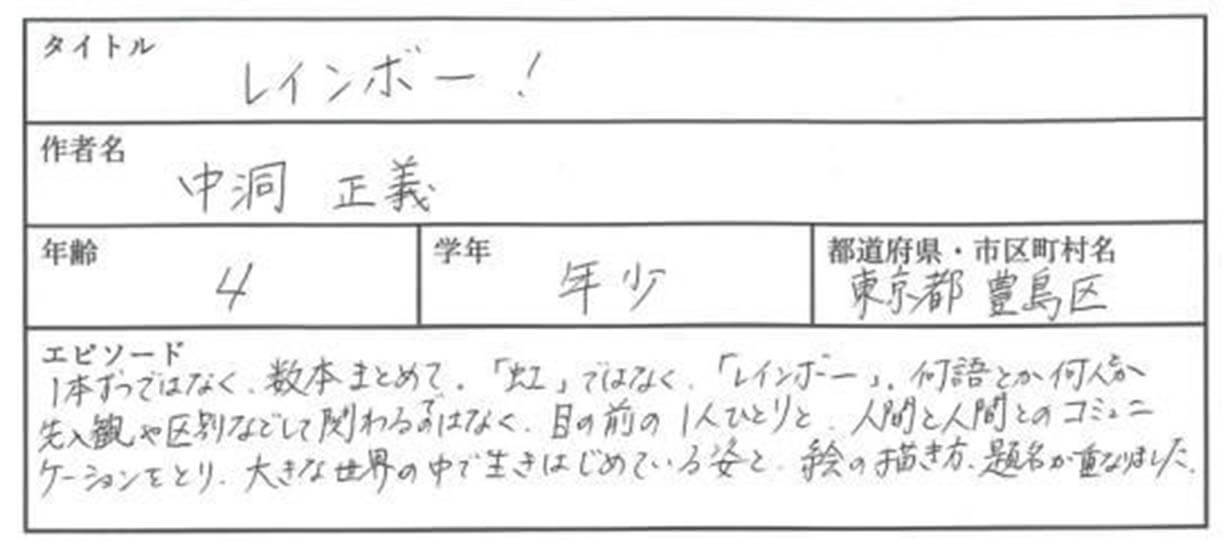 タイトル
レインボー!
作者名
中洞 正義
年齢
4
学年
年少
都道府県・市区町村名
東京都 豊島区
エピソード
1本ずつではなく、数本まとめて。「虹」ではなく、「レインボー」。何語とか何人とか
先入観や区別などして関わるのではなく、目の前の1人ひとりと、人間と人間とのコミュニ
ケーションをとり、大きな世界の中で生きはじめている姿と、絵の描き方、題名が重なりました。